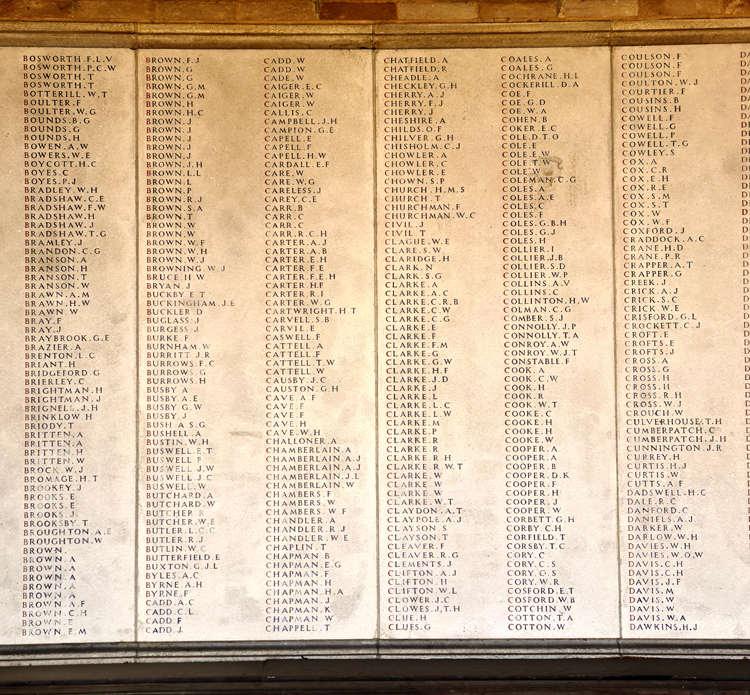 BOSWORTH.F.L.V
BOSWORTH.P.C.W
BOSWORTH.T
BOSWORTH.T
BOTTERILL.W.T
BOULTER.F
BOULTER.W.G
BOUNDS.B.G
BOUNDS.G
BOUNDS.H
BOWEN.A.W
BOWERS.W.E
BOYCOTT.H.C
BOYES.C
BOYES.P.J
BRADLEY.W.H
BRADSHAW.C.E
BRADSHAW.F.W
BRADSHAW.H
BRADSHAW.J
BRADSHAW.T.G
BRAMLEY.J
BRANDON.C.G
BRANSON.A
BRANSON.H
BRANSON.T
BRANSON.W
BRAWN.A.M
BRAWN.H.W
BRAWN.W
BRAY.F
BRAY.J
BRAYBROOK.G.E
BRAZIER.A
BRENTON.L.C
BRIANT.H
BRIDGEFORD.G
BRIERLEY.C
BRIGHTMAN.H
BRIGHTMAN.J
BRIGNELL.J.H
BRINKLOW.H
BRIODY.T
BRITTEN.A
BRITTEN.A
BRITTEN.H
BRITTEN.W
BROCK.W.J
BROMAGE.H.T
BROOKEY.J
BROOKS.E
BROOKS.E
BROOKS.J
BROOKSBY.T
BROUGHTON.A.E
BROUGHTON.W
BROWN.
BROWN.A
BROWN.A
BROWN.A
BROWN.A
BROWN.A
BROWN.A.F
BROWN.C.H
BROWN.E
BROWN.E.M
BROWN.F.J
BROWN.G
BROWN.G
BROWN.G.M
BROWN.G.M
BROWN.H
BROWN.H.C
BROWN.J
BROWN.J
BROWN.J
BROWN.J
BROWN.J
BROWN.J.H
BROWN.L.L
BROWN.L
BROWN.P
BROWN.R.J
BROWN.S.A
BROWN.T
BROWN.W
BROWN.W
BROWN.W.F
BROWN.W.H
BROWN.W.J
BROWNING.W.J
BRUCE.H.W
BRYAN.J
BUCKBY.E.T
BUCKINGHAM.J.E
BUCKLER.D
BUGLASS.J
BURGESS.J
BURKE.F
BURNHAM.W
BURRITT.J.R
BURROWS.F.C
BURROWS.G
BURROWS.H
BUSBY.A
BUSBY.A.E
BUSBY.G.W
BUSBY.J
BUSH.A.S.G
BUSHELL.A
BUSTIN.W.H
BUSWELL.E.T
BUSWELL.F
BUSWELL.J.W
BUSWELL.J.C
BUSWELL.W
BUTCHARD.A
BUTCHARD.W
BUTCHER.R
BUTCHER.W.E
BUTLER.L.C.C
BUTLER.R.J
BUTLIN.W.C
BUTTERFIELD.E
BUXTON.G.J.L
BYLES.A.C
BYRNE.A.H
BYRNE.F
CADD.A.C
CADD.C.L
CADD.F
CADD.J
CADD.W
CADD.W
CADE.W
CAIGER.E.C
CAIGER.W
CAIGER.W
CALLIS.C
CAMPBELL.J.H
CAMPION.G.E
CAPELL.E
CAPELL.F
CAPELL.H.W
CARDALL.E.F
CARE.W
CARE.W.G
CARELESS.J
CAREY.C.E
CARR.B
CARR.C
CARR.C
CARR.R.C.H
CARTER.A.J
CARTER.A.B
CARTER.E.H
CARTER.F.E
CARTER.F.E.H
CARTER.H.F
CARTER.R.I
CARTER.W.G
CARTWRIGHT.H.T
CARVELL.S.B
CARVIL.E
CASWELL.F
CATTELL.A
CATTELL.F
CATTELL.T.W
CATTELL.W
CAUSBY.J.C
CAUSTON.G.H
CAVE.A.F
CAVE.F
CAVE.F
CAVE.H
CAVE.W.H
CHALLONER.A
CHAMBERLAIN.A
CHAMBERLAIN.A.J
CHAMBERLAIN.A.J
CHAMBERLAIN.J.L
CHAMBERLAIN.W
CHAMBERS.F
CHAMBERS.W
CHAMBERS.W.F
CHANDLER.A
CHANDLER.R.J
CHANDLER.W.E
CHAPLIN.T
CHAPMAN.B
CHAPMAN.E.G
CHAPMAN.F
CHAPMAN.H
CHAPMAN.H.A
CHAPMAN.J
CHAPMAN.K
CHAPMAN.W
CHAPPELL.T
CHATFIELD.A
CHATFIELD.R
CHEADLE.A
CHECKLEY.G.H
CHERRY.A.J
CHERRY.F.J
CHERRY.J
CHESHIRE.A
CHILDS.O.F
CHILVER.G.H
CHISHOLM.C.J
CHOWLER.A
CHOWLER.C
CHOWLER.E
CHOWN.S.P
CHURCH.H.M.S
CHURCH.T
CHURCHMAN.F
CHURCHMAN.W.C
CIVIL.J
CIVIL.T
CLAGUE.W.E
CLARE.S.W
CLARIDGE.H
CLARK.N
CLARK.S.G
CLARKE.A
CLARKE.A.C
CLARKE.C.R.B
CLARKE.C.W
CLARKE.C.G
CLARKE.E
CLARKE.F
CLARKE.F.M
CLARKE.G
CLARKE.G.W
CLARKE.H.F
CLARKE.J.D
CLARKE.J
CLARKE.L
CLARKE.L.C
CLARKE.L.W
CLARKE.M
CLARKE.P
CLARKE.R
CLARKE.R
CLARKE.R.H
CLARKE.R.W.T
CLARKE.W
CLARKE.W
CLARKE.W
CLARKE.W.T
CLAYDON.A.T
CLAYPOLE.A.J
CLAYSON.S
CLAYSON.T
CLEAVER.F
CLEAVER.R.G
CLEMENTS.J
CLIFTON.A.J
CLIFTON.H
CLIFTON.W.L
CLOWER.J.C
CLOWES.J.T.H
CLUE.H
CLUES.G
COALES.A
COALES.G
COCHRANE.H.L
COCKERILL.D.A
COE.F
COE.G.D
COE.W.A
COHEN.B
COKER.E.C
COLE.D.T.O
COLE.E
COLE.E.W
COLE.T.W
COLE.W
COLEMAN.C.G
COLES.A
COLES.A.E
COLES.C
COLES.F
COLES.G.B.H
COLES.G.J
COLES.H
COLLIER.I
COLLIER.J.B
COLLIER.S.D
COLLIER.W.P
COLLINS.A.V
COLLINS.C
COLLINTON.H.W
COLMAN.C.G
COMBER.S.J
CONNOLLY.J.P
CONNOLLY.T.A
CONROY.A.W
CONROY.W.J.T
CONSTABLE.F
COOK.A
COOK.C.W
COOK.H
COOK.R
COOK.W.T
COOKE.C
COOKE.H
COOKE.H
COOKE.W
COOPER.A
COOPER.A
COOPER.B
COOPER.D.K
COOPER.F
COOPER.H
COOPER.J
COOPER.W
CORBETT.G.H
CORBY.C.H
CORFIELD.T
CORSBY.T.C
CORY.C
CORY.C.S
CORY.G.S
CORY.W.R
COSFORD.E.T
COSFORD.W.B
COTCHIN.W
COTTON.T.A
COTTON.W
COULSON.F
COULSON.F
COULSON.F
COULTON.W.J
COURTIER.F
COUSINS.B
COUSINS.H
COWELL.F
COWELL.G
COWELL.P
COWELL.T.G
COWLEY.S
COX.A
COX.C.R
COX.E.H
COX.R.E
COX.S.M
COX.S.T
COX.W
COX.W.F
COXFORD.J
CRADDOCK.A.C
CRANE.H.D
CRANE.P.R
CRAPPER.A.T
CRAPPER.G
CREEK.J
CRICK.A.J
CRICK.S.C
CRICK.W.E
CRISFORD.G.L
CROCKETT.C.J
CROFT.E
CROFTS.E
CROFTS.J
CROSS.A
CROSS.G
CROSS.H
CROSS.H
CROSS.R.H
CROSS.W.J
CROUCH.W
CULVERHOUSE.T.H
CUMBERPATCH.C
CUMBERPATCH.J.H
CUNNINGTON.J.R
CURREY.H
CURTIS.H.J
CURTIS.W
CUTTS.A.F
DADSWELL.H.C
DALE.R.C
DANFORD.C
DANIELS.A.J
DARKER.W
DARLOW.W.H
DAVIES.W.H
DAVIES.W.O.W
DAVIS.C.H
DAVIS.J.F
DAVIS.M
DAVIS.W
DAVIS.W
DAVIS.W.A
DAWKINS.H.J